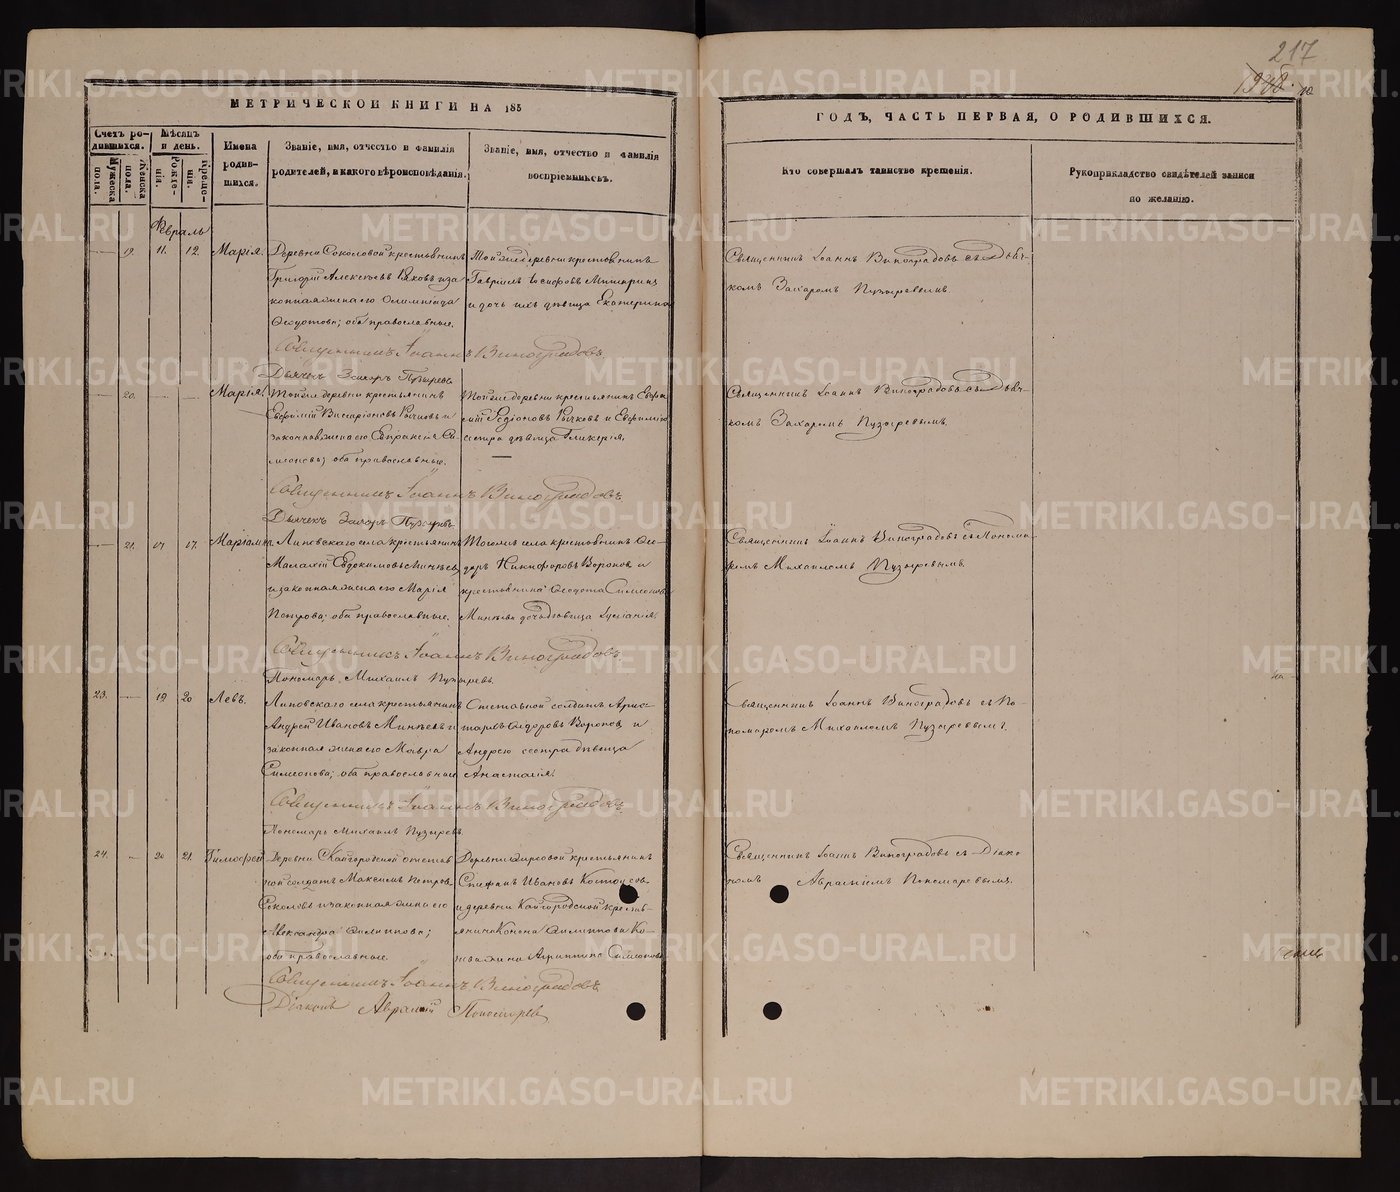 217
МЕТРИЧЕСКОЙ КНИГИ НА 185
ГОДЪ, ЧАСТЬ ПЕРВАЯ, О РОДИВШИХСЯ.
Счетъ родившихся.
Мужеска пола.
Женска пола.
Мѣсяцъ и день.
Рожденія.
Крещенія.
Имена родившихся.
Званіе, имя, отчество и фамилія
родителей, и какого вѣроисповѣданія.
Званіе, имя, отчество и фамилія
воспріемниковъ.
Кто совершалъ таинство крещенія.
Рукоприкладство свидѣтелей записи
по желанію.
Февраль
19. 11. 12. Марія.
Деревни Соколовой крестьянинъ
Григорій Алексѣевъ и за-
конная жена его Олимпіада
Ѳедотова; оба православные.
Тойже деревни крестьянинъ
Гавріилъ Іосифовъ
и дочь ихъ дѣвица Екатерина
Священникъ Іоаннъ Виноградовъ съ Дьяч-
комъ Захаромъ Пузыревымъ.
Священникъ Іоаннъ Виноградовъ
Дьячекъ Захаръ Пузыревъ
20. Марія.
Тойже деревни крестьянинъ
Евфимій Висаріоновъ Рычковъ и
законная жена его Евпраксія Си-
меонова; оба православные.
Тойже деревни крестьянинъ
Родіоновъ Рычковъ и
сестра дѣвица Гликерія.
Священникъ Іоаннъ Виноградовъ съ Дьяч-
комъ Захаромъ Пузыревымъ.
Священникъ Іоаннъ Виноградовъ
Дьячекъ Захаръ Пузыревъ
21. 17. Маріамна
Липовскаго села крестьянинъ
Малахій Евдокимовъ Минѣевъ
и законная жена его Марія
Петрова; оба православные.
Тогожъ села крестьянинъ Ѳео-
доръ Никифоровъ Вороновъ и
крестьянина Ѳедота Симеонова
Минѣева дочь дѣвица
Священникъ Іоаннъ Виноградовъ съ Понома-
ремъ Михаиломъ Пузыревымъ.
Священникъ Іоаннъ Виноградовъ
Пономарь Михаилъ Пузыревъ.
23. 19 20 Левъ.
Липовскаго села крестьянинъ
Андрей Ивановъ Минѣевъ и
законная жена его Мавра
Симеонова; оба православные
Отставной солдатъ Арис-
тархъ Ѳедоровъ Вороновъ и
Андрею сестра дѣвица
Анастасія.
Священникъ Іоаннъ Виноградовъ съ По-
номаремъ Михаиломъ Пузыревымъ.
Священникъ Іоаннъ Виноградовъ
Пономарь Михаилъ Пузыревъ.
24. 20 21. Тимофей
Деревни Кайгородской отстав-
ной солдатъ Максимъ Петровъ
Соколовъ и законная жена его
Александра Филиппова;
оба православные.
Деревни крестьянинъ
Стефанъ Ивановъ
и деревни Кайгородской кресть-
янина Конона Филиппова
жена Агриппина Симеонова
Священникъ Іоаннъ Виноградовъ съ Діако-
номъ Авраміемъ Пономаревымъ.
Священникъ Іоаннъ Виноградовъ
Діаконъ Аврамій Пономаревъ
METRIKI.GASO-URAL.RU